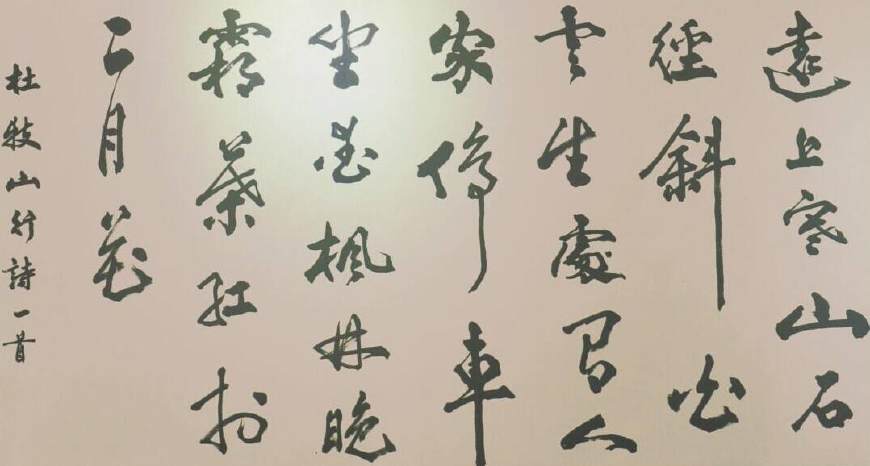 遠上寒山石
徑斜白
云生處有人
家停車
坐愛楓林晚
霜葉紅於
二月花
杜牧山行詩一首